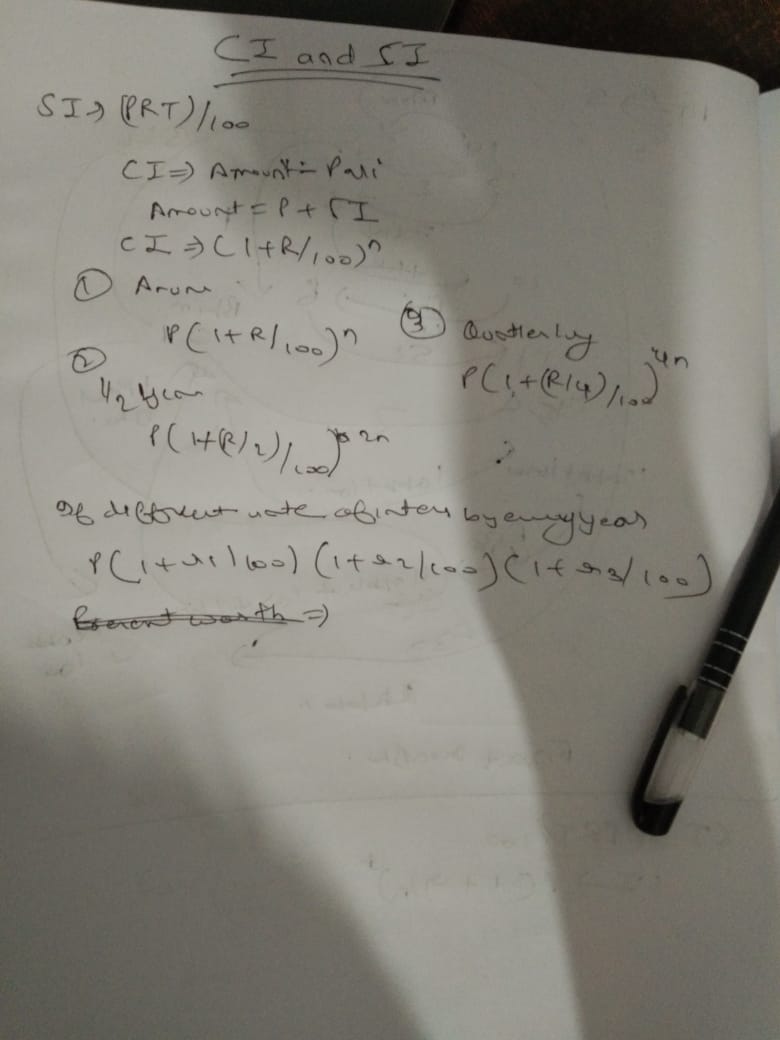 CI and SI
SI → (PRT)/100
CI ⇒ Amount - Pali
Amount = P + SI
CI ⇒ (1+R/100)^n
① Anum
P(1+R/100)^n
② 1/2 year
P(1+(R/2)/100)^2n
③ Quatterly
P(1+(R/4)/100)^4n
If different rate of inters by every year
P(1+r1/100) (1+r2/100) (1+r3/100)
Precent worth ⇒